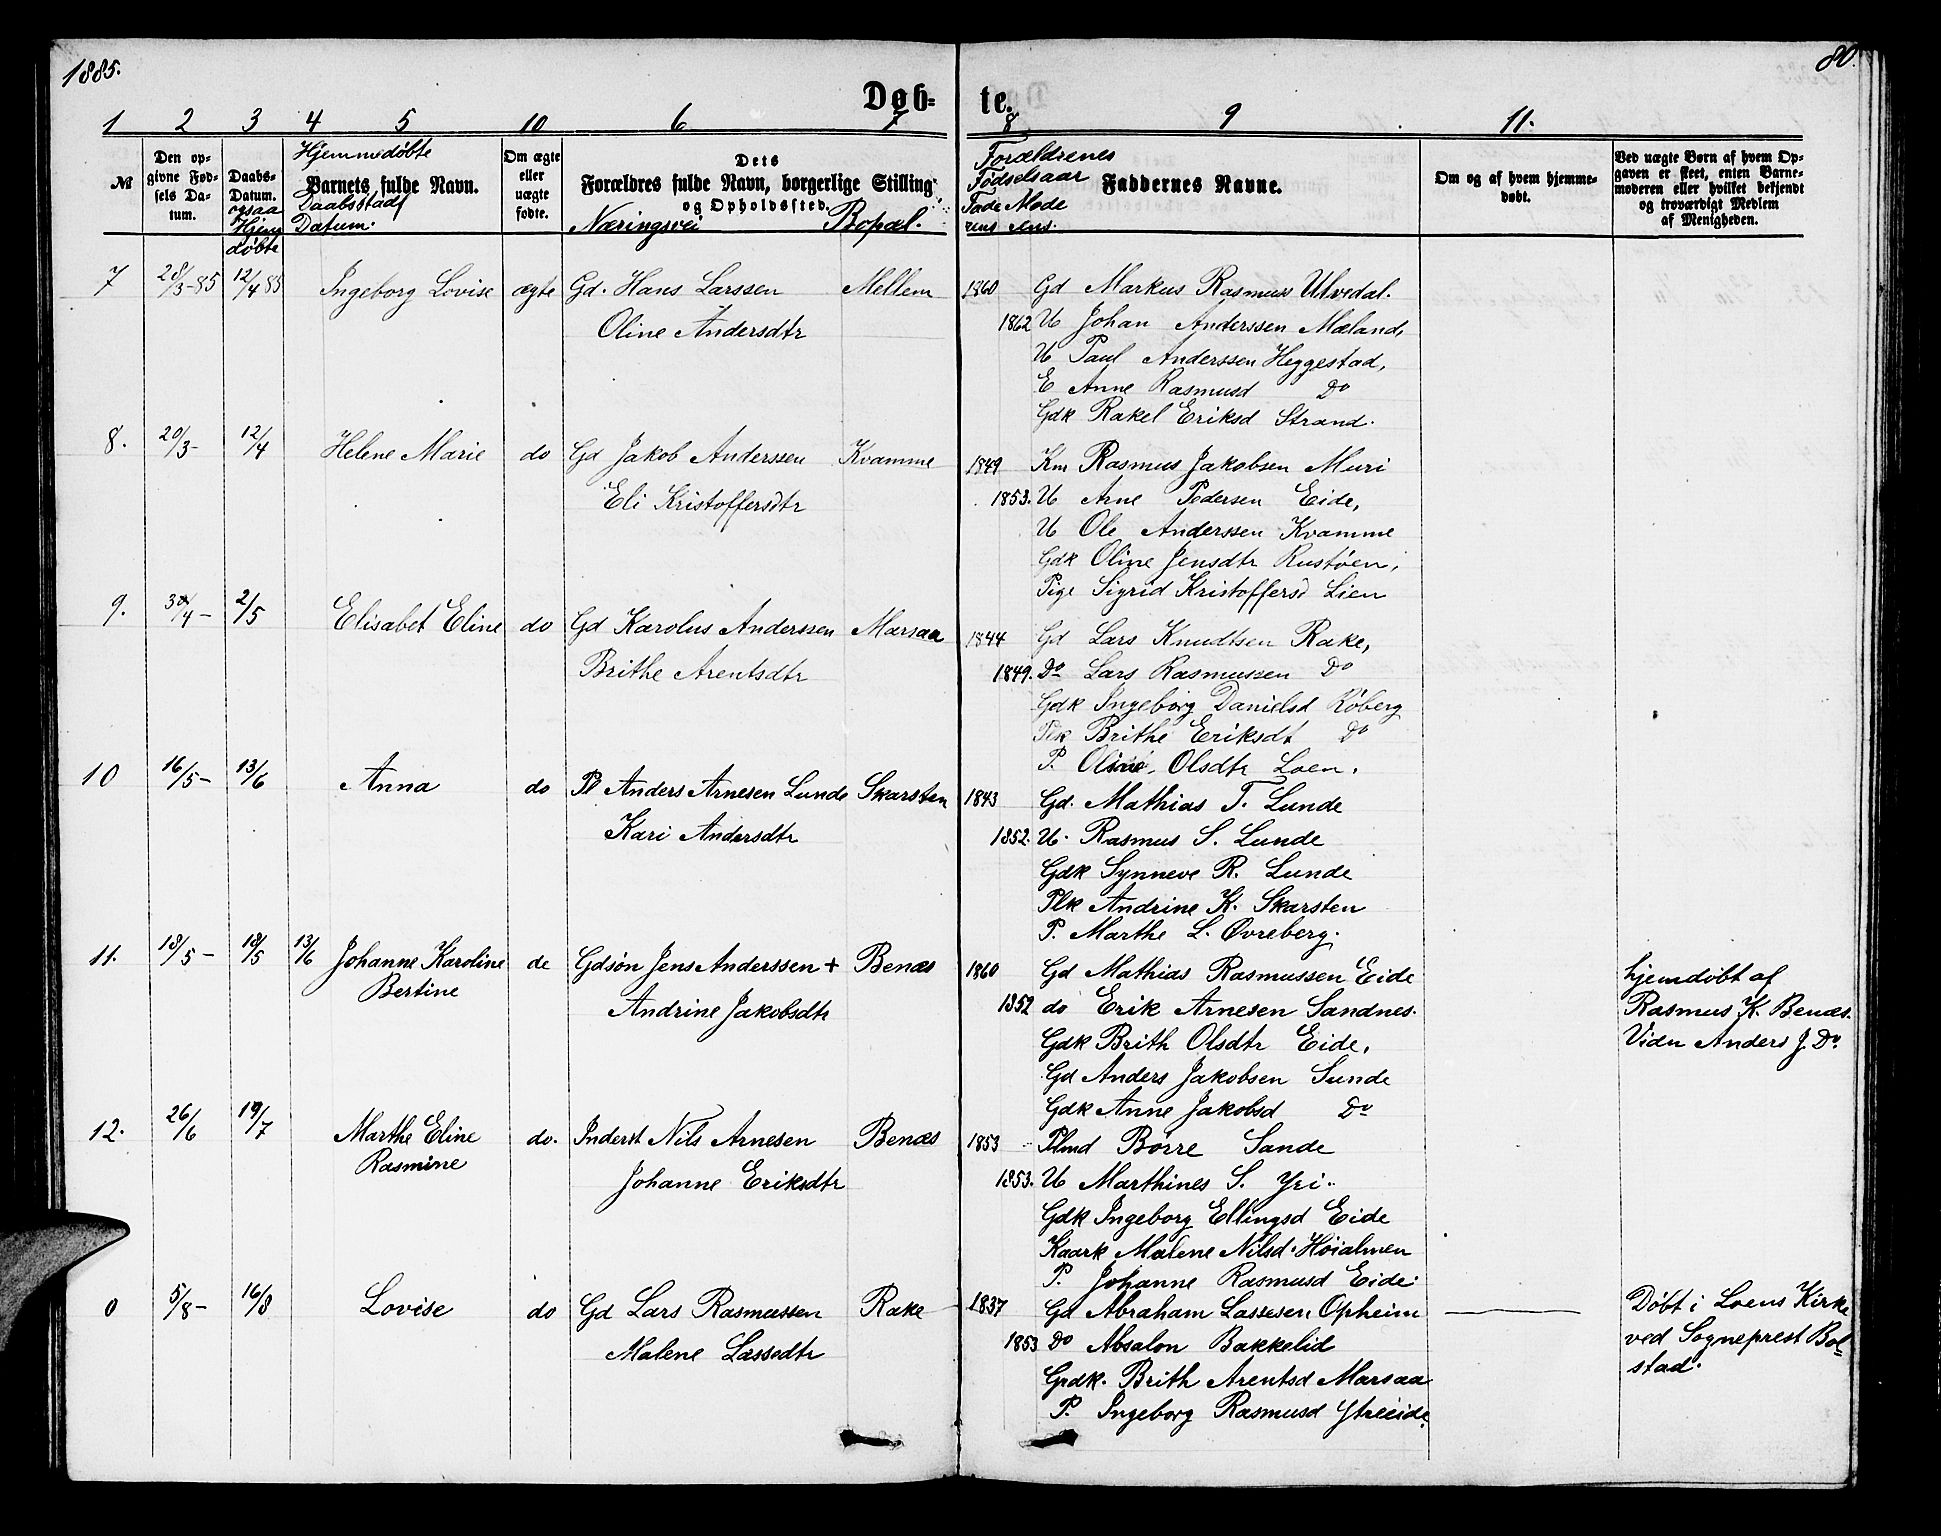 1885.
80.
Døb-
te.
1 2 3 4 5 10 6 7 8 9 11.
№
Den op-
givne Fød-
sels Da-
tum.
Daabs-
Datum.
ogsaa
Hjem
døbte
Hjemmedøbte
Barnets fulde Navn.
Daabsstad
Datum.
Om ægte
eller
uægte
fødte.
Dets
Forældres fulde Navn, borgerlige Stilling
og Opholdssted.
Næringsvei Bopæl.
Forældrenes
Fødselsaar
Fade Mode
rens rens.
Faddernes Navne.
Om og af hvem hjemme-
døbt.
Ved uægte Børn af hvem Op-
gaven er skeet, enten Barne-
moderen eller hvilket bekjendt
og troværdigt Medlem
af Menigheden.
7 28/3-85 12/4 85 Ingeborg Lovise ægte Gd. Hans Larssen Mellem 1860 Gd Markus Rasmuss Ulvedal.
Oline Andersdtr 1862 U Johan Anderssen Mæland,
U Paul Anderssen Heggestad,
E Anne Rasmusd Do
Gdk Rakel Eriksd Strand.
8. 20/3- 12/4 Helene Marie do Gd Jakob Anderssen Kvamme 1849 Km Rasmus Jakobsen Muri
Eli Kristoffersdtr 1853. U Arne Pedersen Eide,
U Ole Anderssen Kvamme
Gdk Oline Jensdtr Rustøen,
Pige Sigrid Kristoffersd Lien
9. 30/4- 2/5 Elisabet Eline do Gd Karolus Anderssen Marsaa 1844 Gd Lars Knudtsen Rake,
Brithe Arentsdtr 1849. Do Lars Rasmussen Do
Gdk Ingeborg Danielsd Røberg
Plk Brithe Eriksdt Do
P. Oline Olsdtr Loen.
10 16/5- 13/6 Anna do Pl Anders Arnesen Lunde Skarsten 1843 Gd. Mathias T. Lunde
Kari Andersdtr 1852. U. Rasmus S. Lunde
Gdk Synneve R. Lunde
Plk Andrine K. Skarsten
P. Marthe L. Øvreberg.
11. 18/5- 18/5 13/6 Johanne Karoline de Gdsøn Jens Anderssen + Benæs 1860 Gd Mathias Rasmussen Eide hjemdøbt af
Bertine Andrine Jakobsdtr 1852 do Erik Arnesen Sandnes. Rasmus K. Benæs.
Gdk Brith Olsdtr Eide. Vidn Anders J. Do.
Gd Anders Jakobsen Sunde
Gdk Anne Jakobsd Do
12. 26/6 19/7 Marthe Eline do. Inderst Nils Arnesen Benæs 1853 Plmd Børre Sande
Rasmine Johanne Eriksdtr 1853. U Marthines S. Yri.
Gdk Ingeborg Ellingsd Eide
Kaark Malene Nilsd. Høialmen
P. Johanne Rasmusd Eide.
0 5/8- 16/8 Lovise do Gd Lars Rasmussen Rake 1837 Gd Abraham Lassesen Opheim Døbt i Loens Kirke
Malene Lassedtr 1853 Do Absalon Bakkelid ved Sogneprest Bol=
Grdk. Brith Arentsd Marsaa stad.
P. Ingeborg Rasmusd Ytreeide.